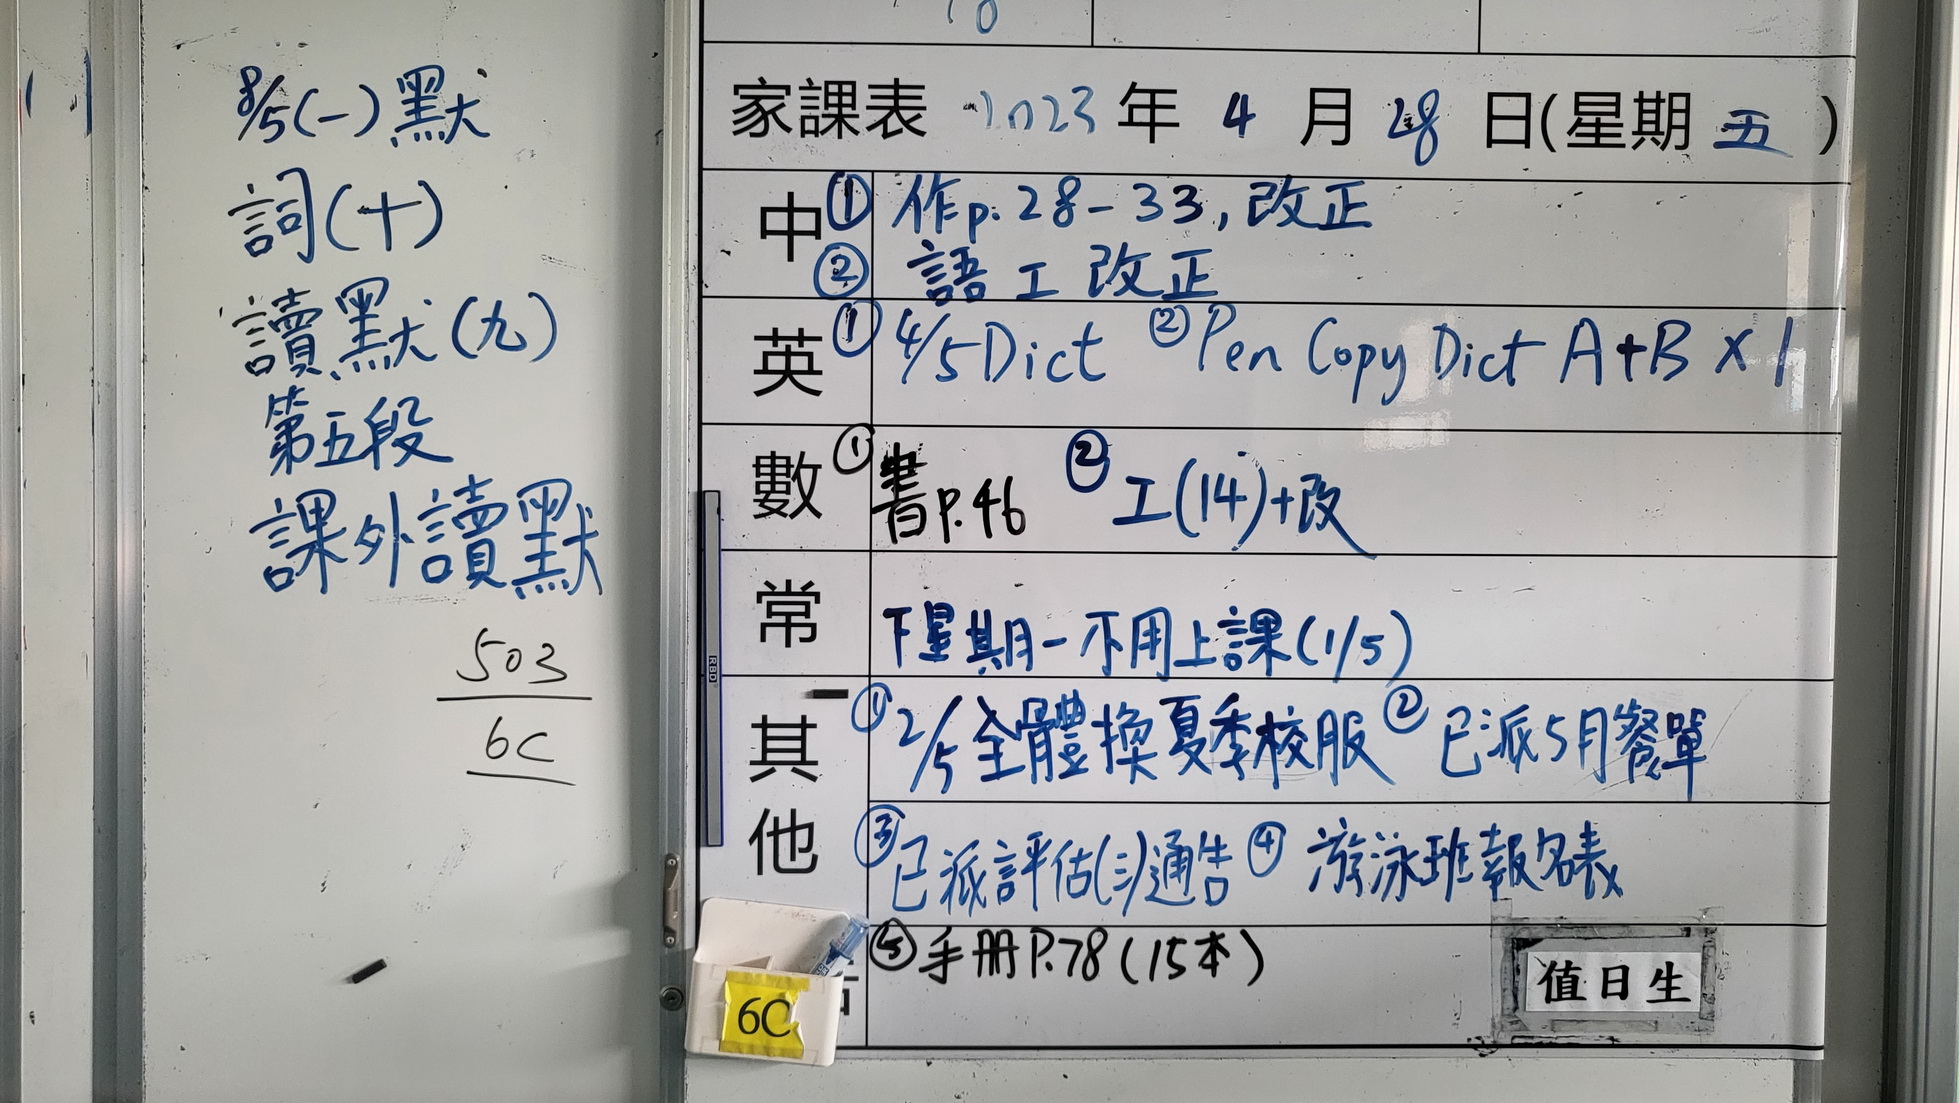 8/5(一)默
詞(十)
讀默(九)
第五段
課外讀默
503
6C
家課表 2023年 4 月 28 日(星期 五 )
中 ① 作p.28-33,改正
② 語工改正
英 ① 4/5 Dict ② Pen Copy Dict A+B x 1
數 ① 書P.46 ② 工(14)+改
常 下星期一不用上課(1/5)
其他 ① 2/5全體換夏季校服 ② 已派5月餐單
③ 已派評估(三)通告 ④ 游泳班報名表
⑤ 手册P.78(15本)
值日生
6C
RBD